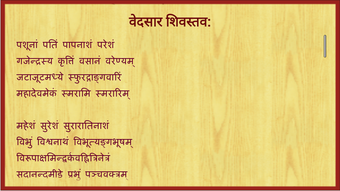 वेदसार शिवस्तव:
पशूनां पतिं पापनाशं परेशं
गजेन्द्रस्य कृत्तिं वसानं वरेण्यम्
जटाजूटमध्ये स्फुरद्गाङ्गवारिं
महादेवमेकं स्मरामि स्मरारिम्
महेशं सुरेशं सुरारातिनाशं
विभुं विश्वनाथं विभूत्यङ्गभूषम्
विरूपाक्षमिन्द्वर्कवह्नित्रिनेत्रं
सदानन्दमीडे प्रभुं पञ्चवक्त्रम्